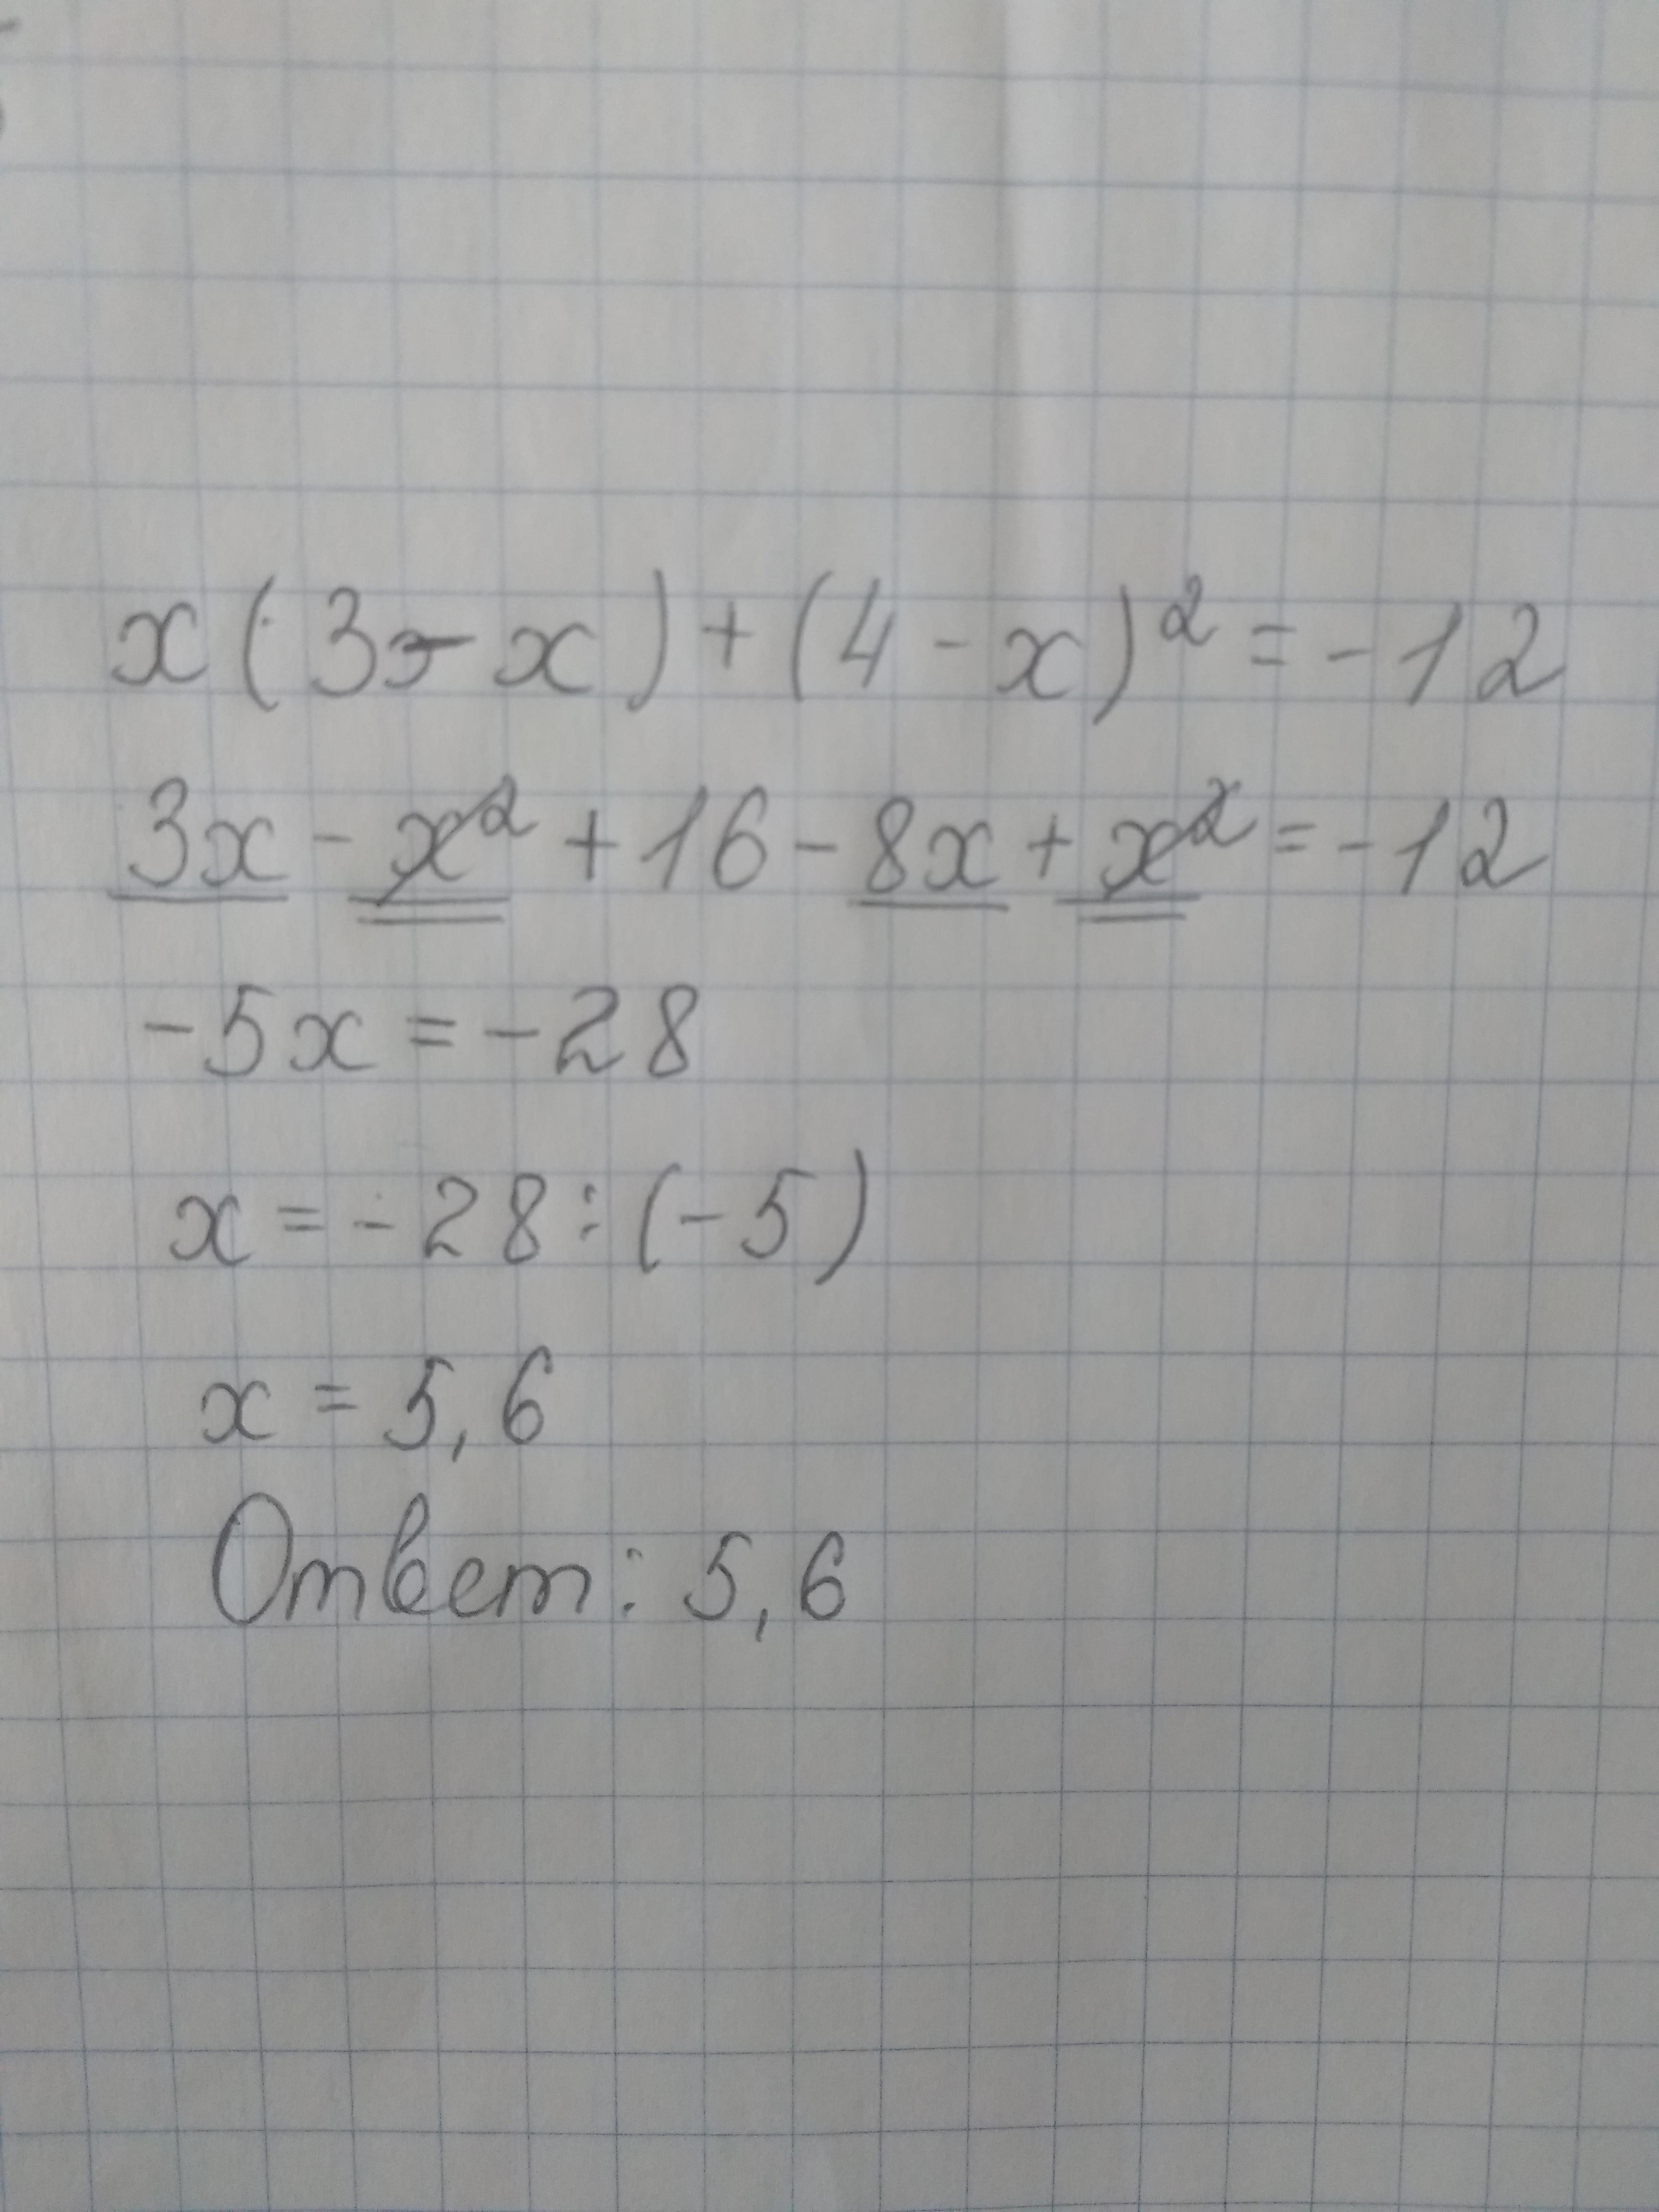 x(3-x)+(4-x)²=-12
3x-x²+16-8x+x²=-12
-5x=-28
x=-28:(-5)
x=5,6
Ответ: 5,6